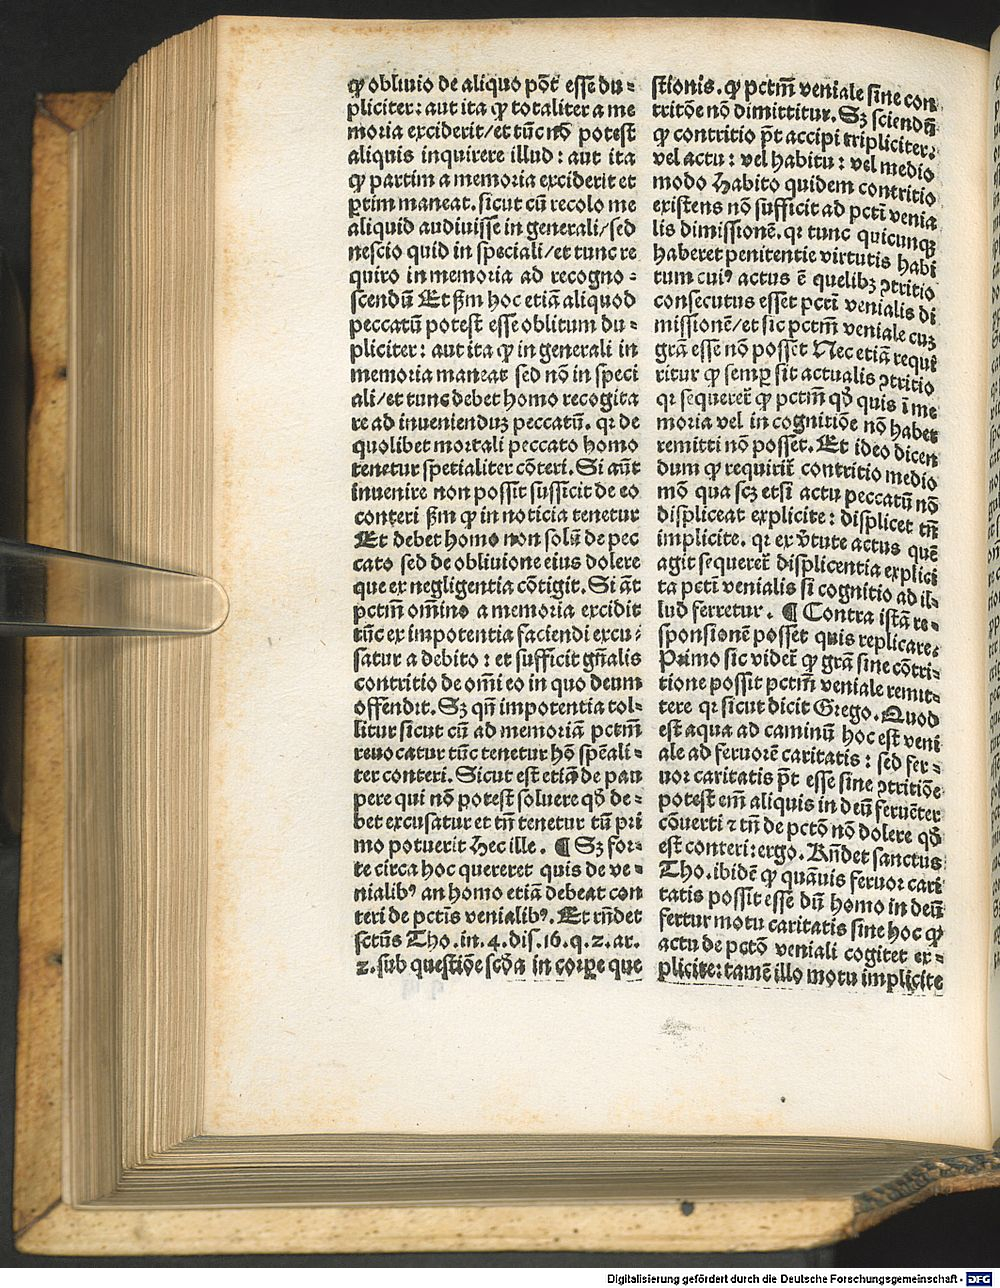 ꝙ obliuio de aliquo põt esse du⸗
pliciter: aut ita ꝙ totaliter a me
moria exciderit/et tũc nõ potest
aliquis inquirere illud: aut ita
ꝙ partim a memoria exciderit et
ꝑtim maneat. sicut cũ recolo me
aliquid audiuisse in generali/sed
nescio quid in speciali/et tunc re
quiro in memoria ad recogno⸗
scendũ Et ẜm hoc etiã aliquod
peccatũ potest esse oblitum du⸗
pliciter: aut ita ꝙ in generali in
memoria maneat sed nõ in speci
ali/et tunc debet homo recogita
re ad inuenienduꝫ peccatũ. qꝛ de
quolibet mortali peccato homo
tenetur spetialiter cõteri. Si aũt
inuenire non possit sufficit de eo
conteri ẜm ꝙ in noticia tenetur
Et debet homo non solũ de pec
cato sed de obliuione eius dolere
que ex negligentia cõtigit. Si aũt
pctm̃ om̃ino a memoria excidit
tũc ex impotentia faciendi excu⸗
satur a debito: et sufficit gñalis
contritio de om̃i eo in quo deum
offendit. Sꝫ qñ impotentia tol⸗
litur sicut cũ ad memoriã pctm̃
reuocatur tũc tenetur hõ spẽali⸗
ter conteri. Sicut est etiã de pau
pere qui nõ potest soluere qđ de⸗
bet excusatur et tñ tenetur cũ pri
mo potuerit Hec ille. ¶ Sꝫ for⸗
te circa hoc quereret quis de ve⸗
nialibꝰ an homo etiã debeat con
teri de pctĩs venialibꝰ. Et rñdet
sctũs Tho. in. 4. dis. 16. q. 2. ar.
2. sub questiõe scđa in corꝑe que
stionis. ꝙ pctm̃ veniale sine con
tritõe nõ dimittitur. Sꝫ sciendũ
ꝙ contritio p̃t accipi tripliciter.
vel actu: vel habitu: vel medio
modo Habito quidem contritio
existens nõ sufficit ad pcti venia
lis dimissionẽ. qꝛ tunc quicunqꝫ
haberet penitentie virtutis habi
tum cuiꝰ actus ẽ quelibꝫ ꝯtritio
consecutus esset pcti venialis di
missionẽ/et sic pctm̃ veniale cuꝫ
grã esse nõ posset Nec etiã requi
ritur ꝙ semꝑ sit actualis ꝯtritio
qꝛ sequeret̃ ꝙ pctm̃ qđ quis ĩ me
moria vel in cognitiõe nõ habet
remitti nõ posset. Et ideo dicen
dum ꝙ requirit̃ contritio medio
mõ qua scꝫ etsi actu peccatũ nõ
displiceat explicite: displicet tñ
implicite. qꝛ ex ṽtute actus quẽ
agit sequeret̃ displicentia explici
ta pcti venialis si cognitio ad il⸗
lud ferretur. ¶ Contra istã re⸗
sponsionẽ posset quis replicare.
Primo sic videt̃ ꝙ grã sine cõtri⸗
tione possit pctm̃ veniale remit⸗
tere qꝛ sicut dicit Grego. Quod
est aqua ad caminũ hoc est veni
ale ad feruorẽ caritatis: sed fer⸗
uor caritatis p̃t esse sine ꝯtritiõe
potest em̃ aliquis in deũ feruẽter
cõuerti ⁊ tñ de pctõ nõ dolere qđ
est conteri: ergo. Rñdet sanctus
Tho. ibidẽ ꝙ quãuis feruor cari
tatis possit esse dũ homo in deũ
fertur motu caritatis sine hoc ꝙ
actu de pctõ veniali cogitet ex⸗
plicite: tamẽ illo motu implicite
Digitalisierung gefördert durch die Deutsche Forschungsgemeinschaft - DFG